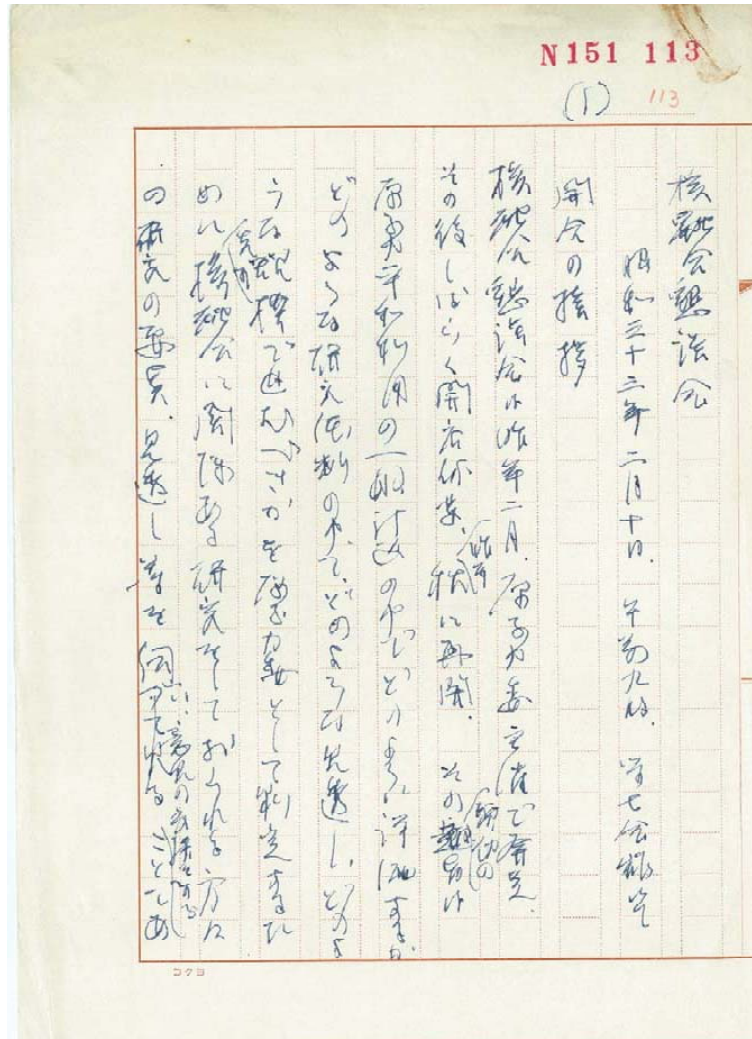 N151 113
(1) 113
核融合懇談会
昭和三十三年二月十日. 午前九時. 学士会館ニテ
開会の挨拶
核融合懇談会は昨年二月. 原子力委主催で発足.
その後しばらく開店休業. 昨年 秋に再開. その 類似の は
原子力平和利用の一般計画の中でどのように評価するか
どのような研究体制の中で、どのような見透し、どのよ
うな 規模で進むべきかを原子力委として判定するた
めに 核融合に関係ある研究をしておられる方に
の研究の 見透し等を伺い、意見の交換をする ことであ
コクヨ